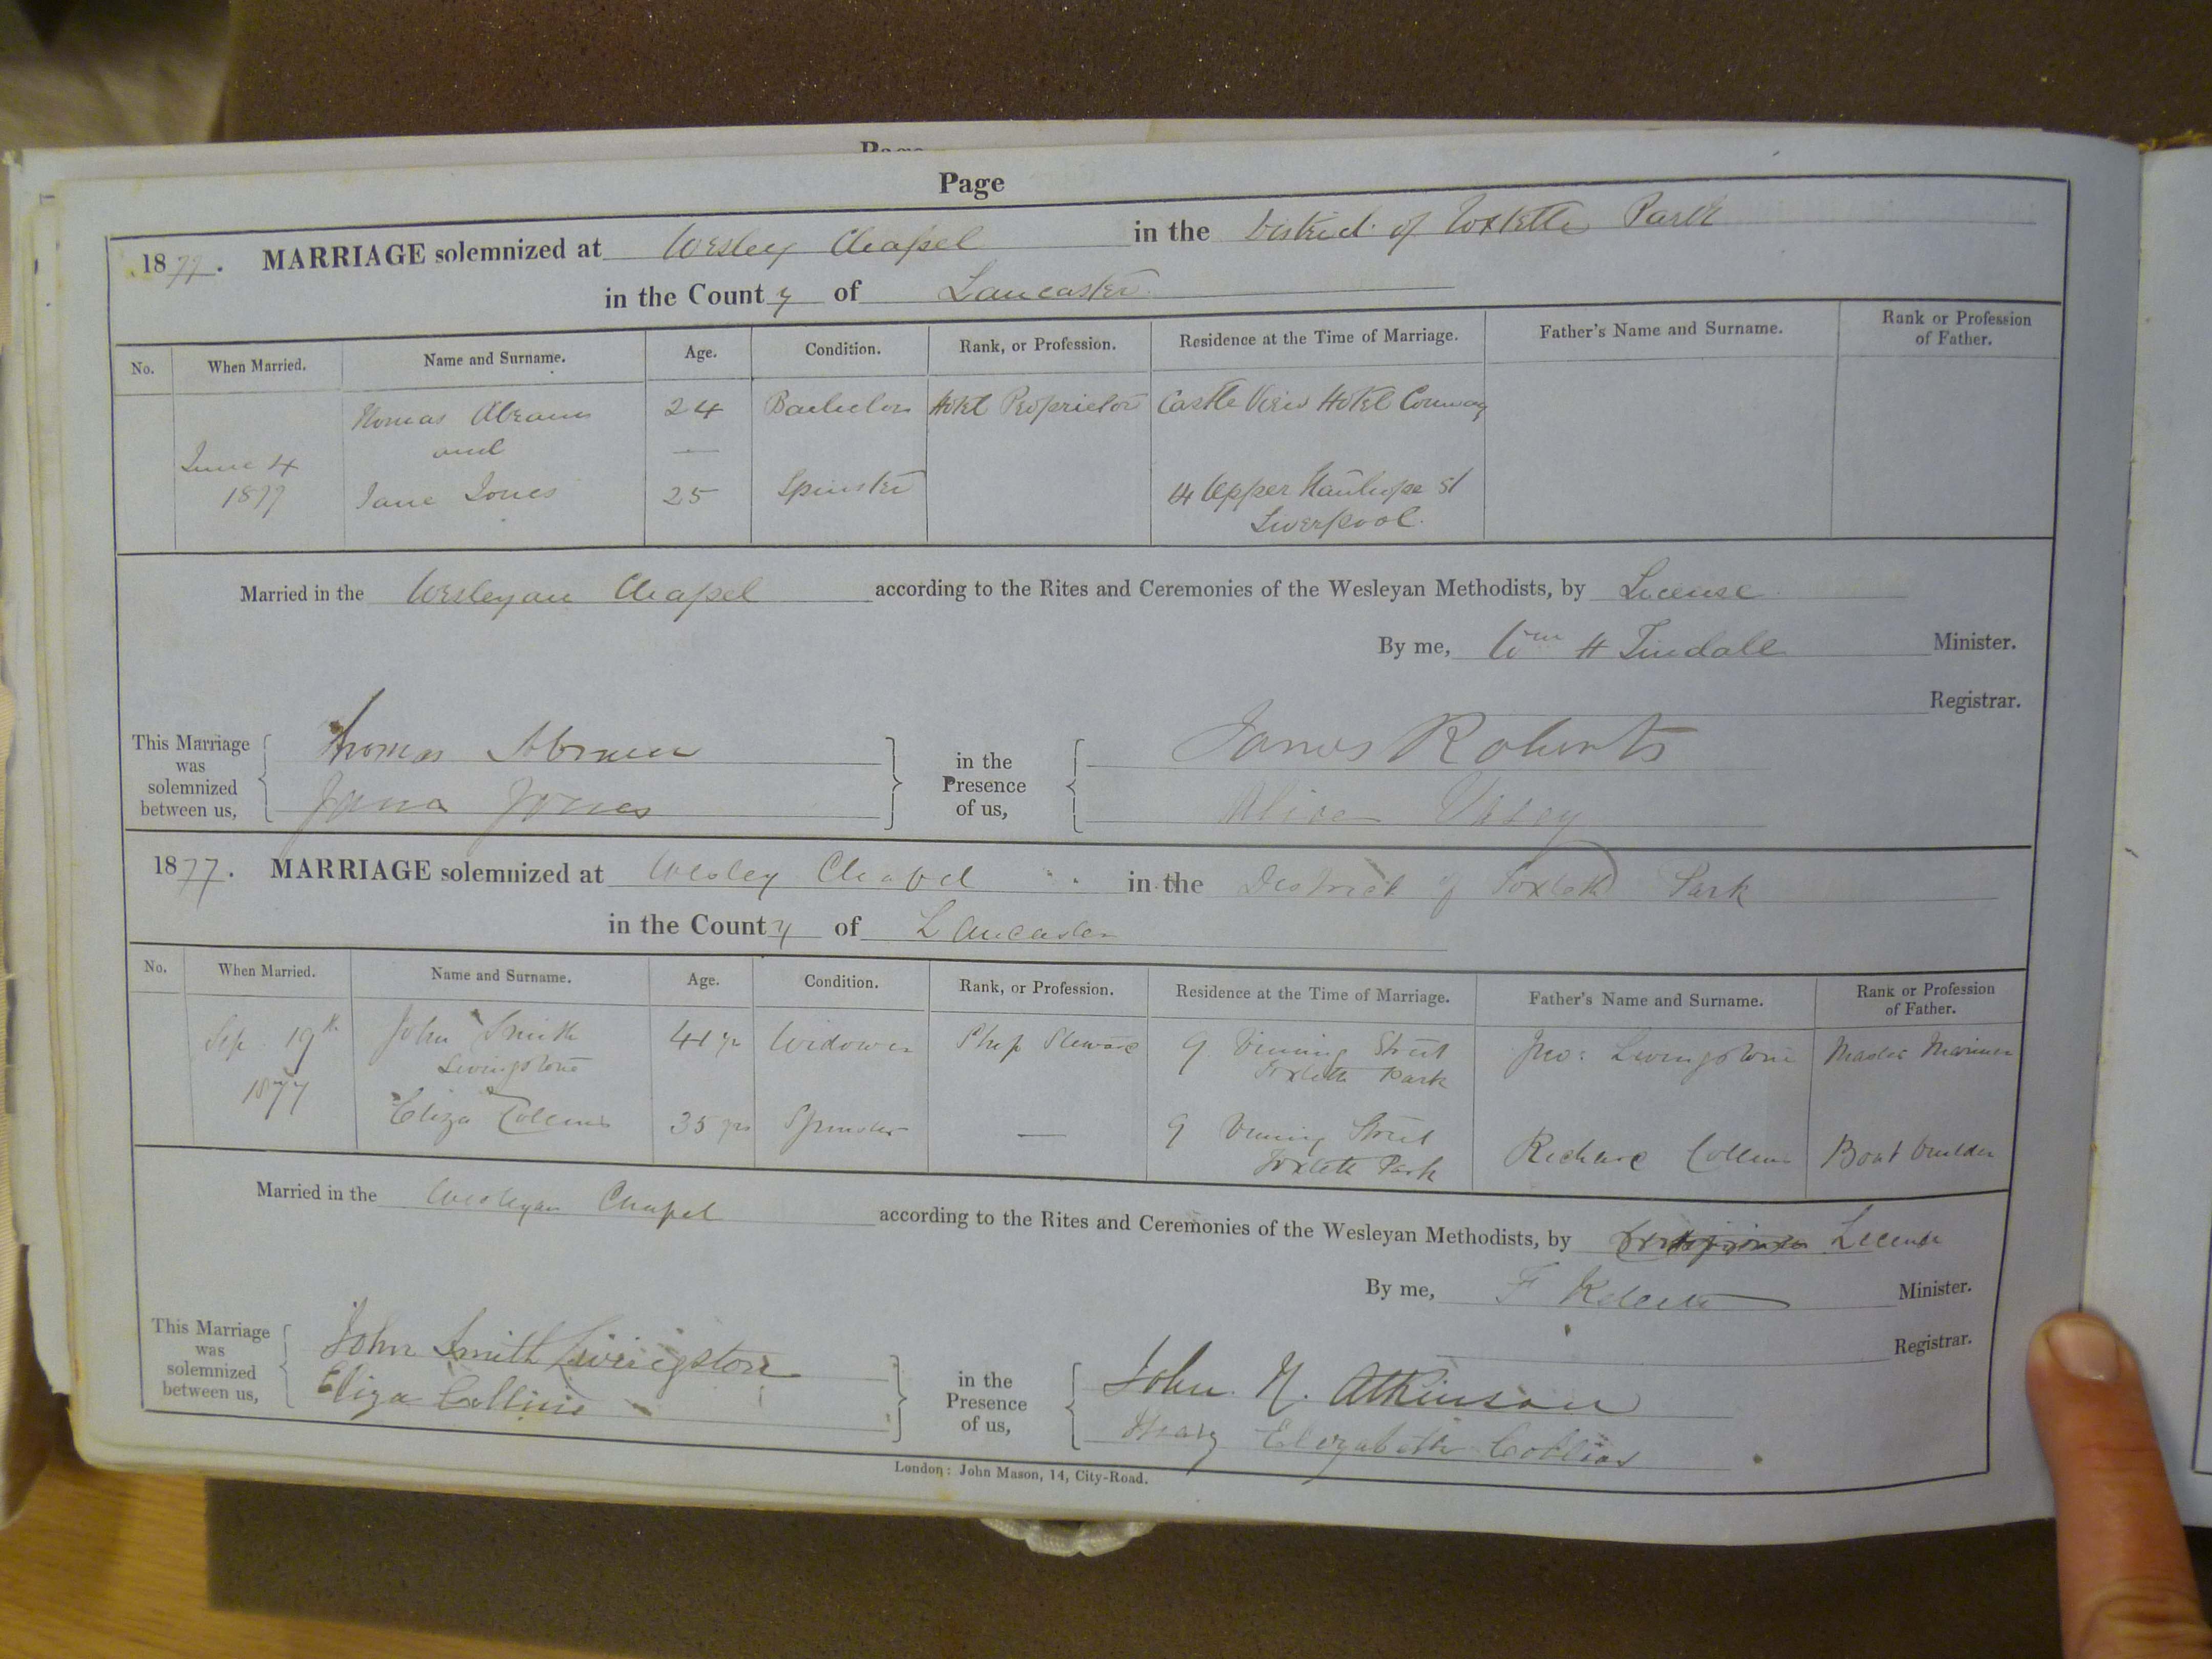 Page
1877. MARRIAGE solemnized at Wesley Chapel in the District of Toxteth Park
in the County of Lancaster
No. When Married. Name and Surname. Age. Condition. Rank, or Profession. Residence at the Time of Marriage. Father's Name and Surname. Rank or Profession of Father.
Thomas Abram 24 Bachelor Hotel Proprietor Castle View Hotel Conway
June 4 and —
1877 Jane Jones 25 Spinster 14 Upper Stanhope St
Liverpool.
Married in the Wesleyan Chapel according to the Rites and Ceremonies of the Wesleyan Methodists, by License
By me, Wm H Tindall Minister.
Registrar.
This Marriage was solemnized between us, Thomas Abram in the Presence of us, James Roberts
Jane Jones Alice
1877. MARRIAGE solemnized at Wesley Chapel in the District of Toxteth Park
in the County of Lancaster
No. When Married. Name and Surname. Age. Condition. Rank, or Profession. Residence at the Time of Marriage. Father's Name and Surname. Rank or Profession of Father.
Sep 19th John Smith 41 yrs Widower Ship Steward 9 Vining Street Jno: Livingstone Master Mariner
Livingstone Toxteth Park
1877 Eliza Collins 35 yrs Spinster — 9 Vining Street Richard Collins Boat builder
Toxteth Park
Married in the Wesleyan Chapel according to the Rites and Ceremonies of the Wesleyan Methodists, by License
By me, F Minister.
Registrar.
This Marriage was solemnized between us, John Smith Livingston in the Presence of us, John N. Atkinson
Eliza Collins Mary Elizabeth Collins
London: John Mason, 14, City-Road.